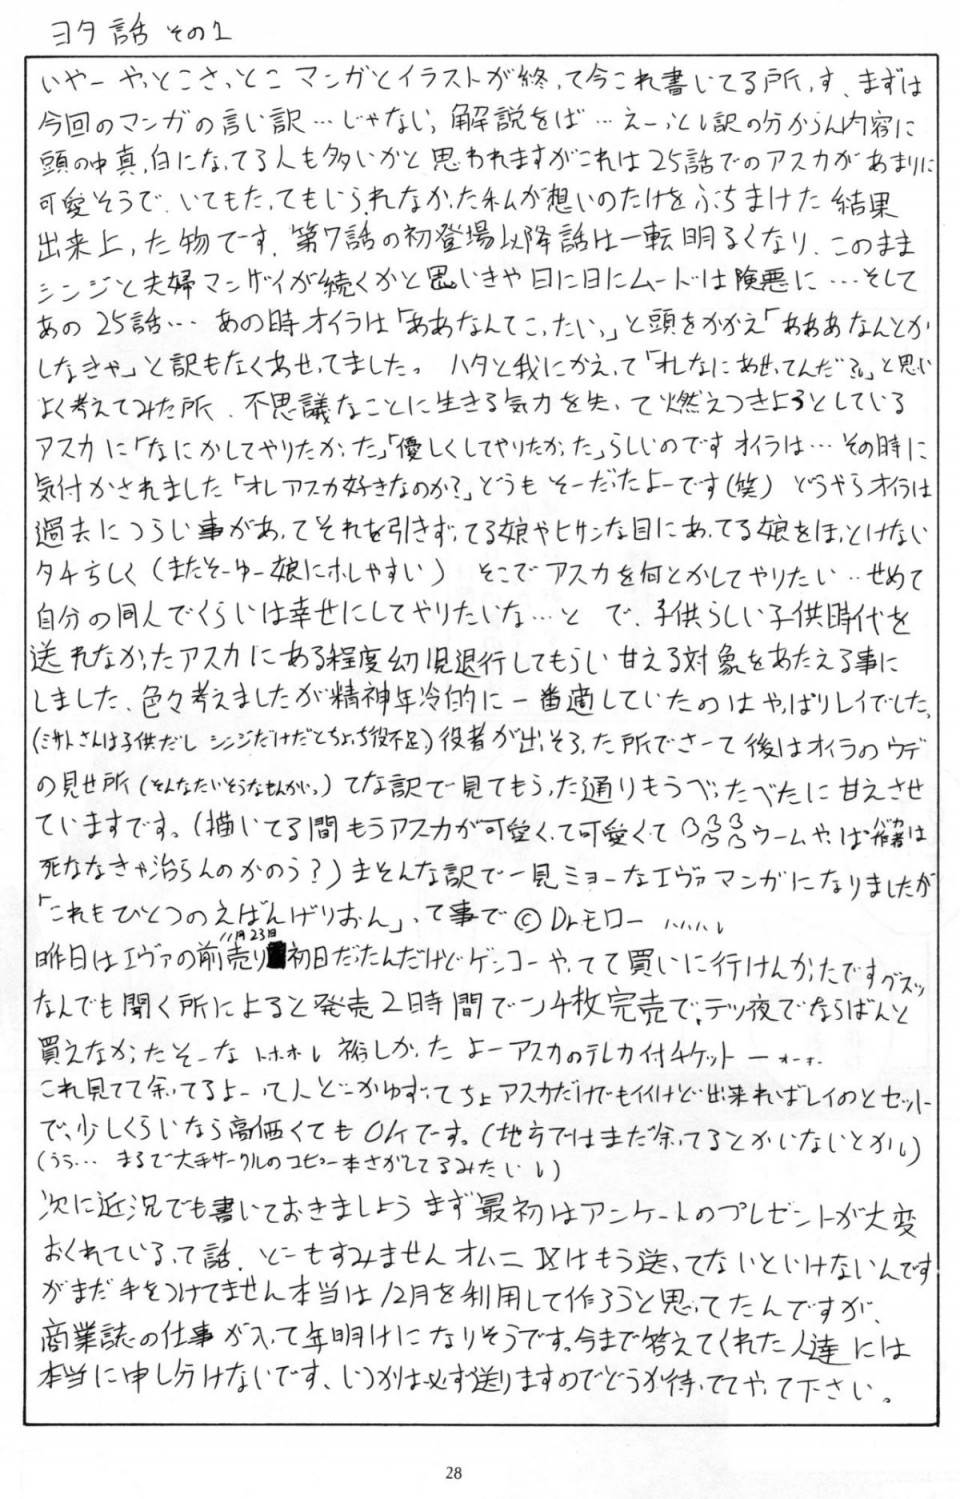 ヨタ話 その1
いやー やっとこさっとこ マンガとイラストが終って今これ書いてる所っす、まずは
今回のマンガの言い訳…じゃない、解説をば…えーっとし訳の分からん内容に
頭の中真っ白になってる人も多いかと思われますがこれは25話でのアスカがあまりに
可愛そうで、いてもたってもいられなかった私が想いのたけをぶちまけた結果
出来上った物です、第7話の初登場以降話は一転明るくなり、このまま
シンジと夫婦マンザイが続くかと思いきや日に日にムードは険悪に…そして
あの25話… あの時オイラは「ああなんてこったいっ」と頭をかかえ「あああなんとか
しなきゃ」と訳もなくあせってました。ハタと我にかえって「オレなにあせってんだ?」と思い
よく考えてみた所、不思議なことに生きる気力を失って燃えつきようとしている
アスカに「なにかしてやりたかった」「優しくしてやりたかった」らしいのですオイラは…その時に
気付かされました「オレアスカ好きなのか?」どうもそーだったよーです(笑) どうやらオイラは
過去につらい事があってそれを引きずってる娘やヒサンな目にあってる娘をほっとけない
タチらしく(またそーゆー娘にホレやすい) そこでアスカを何とかしてやりたい‥せめて
自分の同人でくらいは幸せにしてやりたいな…と で、子供らしい子供時代を
送れなかったアスカにある程度幼児退行してもらい甘える対象をあたえる事に
しました、色々考えましたが精神年冷的に一番適していたのはやっぱりレイでした、
(ミサトさんは子供だし シンジだけだとちょっち役不足)役者が出そろった所でさーて後はオイラのウデ
の見せ所(そんなたいそうなもんかいっ) てな訳で見てもらった通りもうべったべたに甘えさせ
ていますです。(描いてる間もうアスカが可愛くって可愛くて ウームやっぱ作者バカは
死ななきゃ治らんのかのう?)まそんな訳で一見ミョーなエヴァマンガになりましたが
「これもひとつのえばんげりおん」って事で ©Dr.モロー
昨日はエヴァの前売り11月23日初日だったんだけどゲンコーやってて買いに行けんかったですグスッ
なんでも聞く所によると発売2時間で 4枚完売で、テツ夜でならばんと
買えなかったそーな トホホし 欲しかったよーアスカのテレカ付チケットー
これ見てて余ってるよーって人どーかゆずってちょアスカだけでもイイけど出来ればレイのとセット
で、少しくらいなら高価くてもOKです。(地方ではまだ余ってるとかいないとかし)
(うう… まるで大手サークルのコピー本さがしてるみたいし)
次に近況でも書いておきましょう まず最初はアンケートのプレゼントが大変
おくれているって話、どーもすみません オムニⅨはもう送ってないといけないんです
がまだ手をつけてません本当は12月を利用して作ろうと思ってたんですが、
商業誌の仕事が入って年明けになりそうです。今まで答えてくれた人達には
本当に申し分けないです、いつかは必ず送りますのでどうか待っててやって下さい。
28